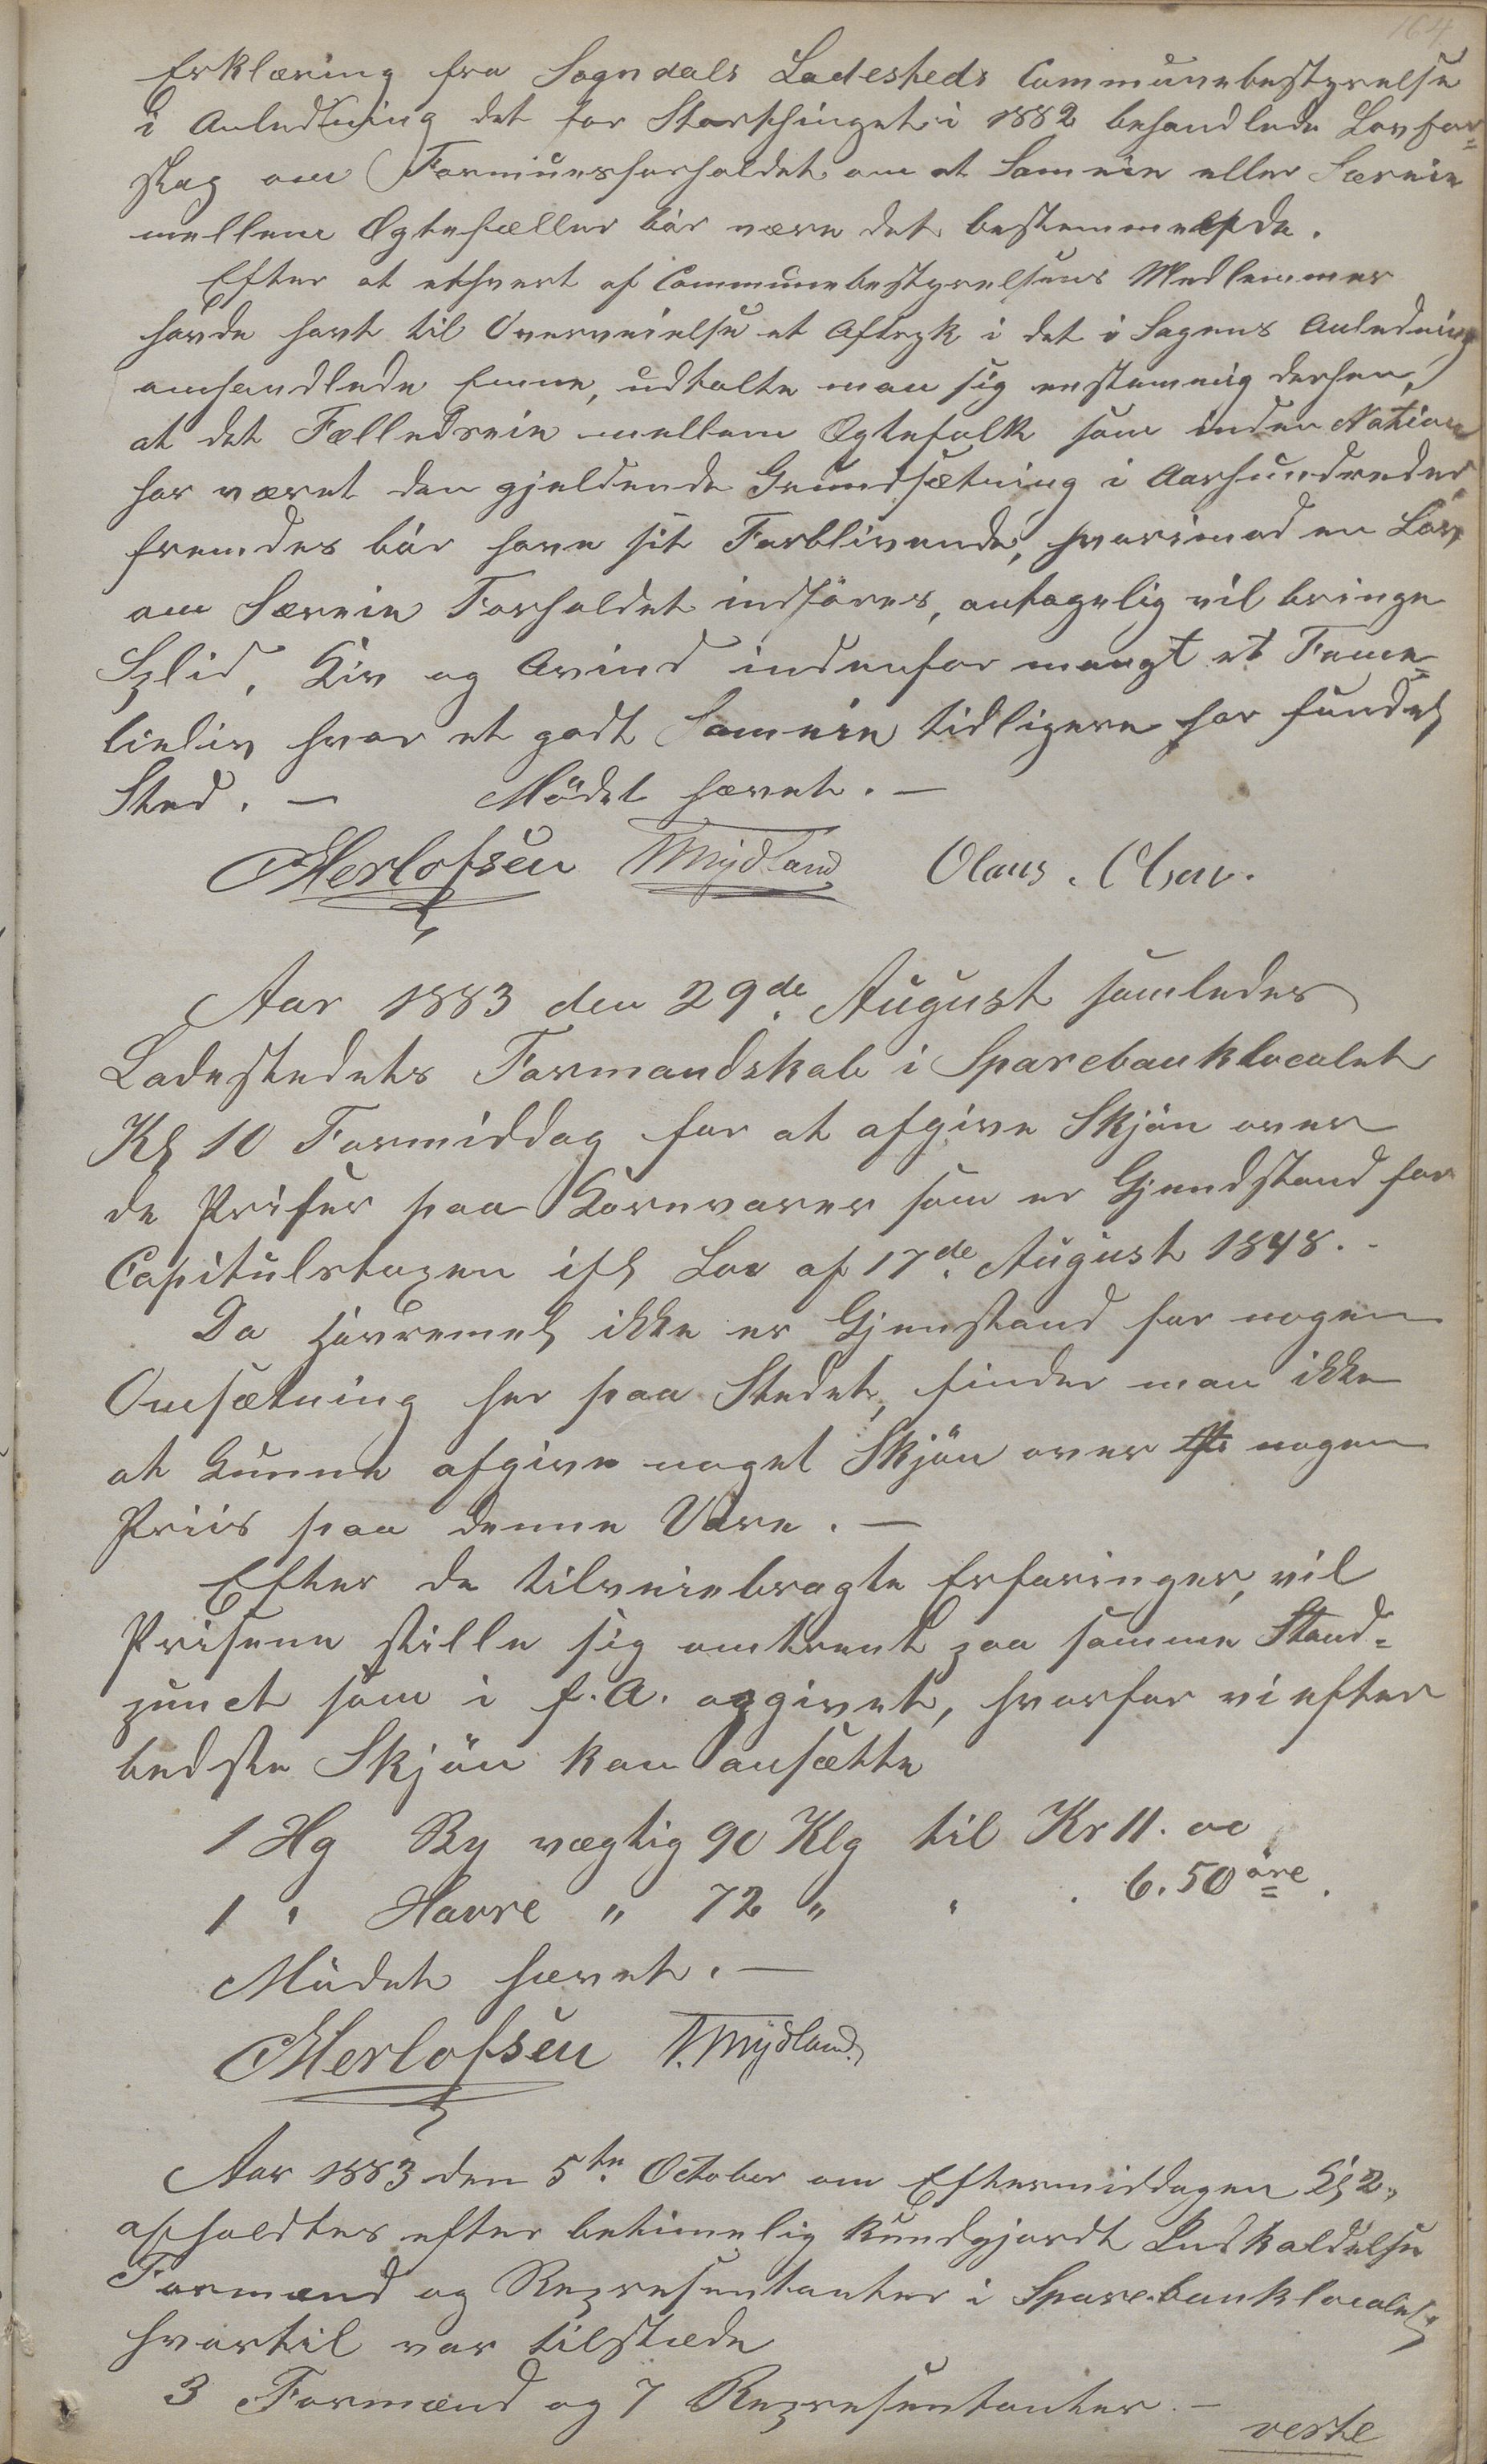 164
Erklæring fra Sogndals Ladesteds Communebestyrelse
i Anledning det for Storthinget i 1882 behandlede Lovfor=
slag om Formuesforholdet om et Sameie eller Særeie
mellem Ægtefæller bör være det bestemmende.
Efter at ethvert af Communebestyrelsens Medlemmer
havde havt til Overveielse et Aftryk i det i Sagens Anledning
omhandlede Emne, udtalte man sig enstemmig derhen,
at det Fælledseie mellem Ægtefolk som inden Nation
har været den gjeldende Grundsætning i Aarhundreder
fremdes bör have sit Forblivende, hvorimod en Lov
om Særeie Forholdet indføres, antagelig vil bringe
Splid, Kiv og Avind indenfor mangt et Fame=
lieliv hvor et godt Sameie tidligere har fundet
Sted. — Mödet hævet. —
Herlofsen TMydland Olaus. Olsen.
Aar 1883 den 29de August samledes
Ladestedets Formandskab i Sparebanklocalet
Kl 10 Formiddag for at afgive Skjön over
de Priser paa Kornvarer som er Gjendstand for
Capitulstaxen ifl Lov af 17de August 1848. -
Da Havremel ikke er Gjenstand for nogen
Omsætning her paa Stedet, finder man ikke
at kunne afgive noget Skjön over nogen
Priis paa denne Vare. —
Efter de tilveiebragte Erfaringer, vil
Prisene stille sig omtrent paa samme Stand=
punct som i f. A. opgivet, hvorfor vi efter
bedste Skjön kan ansætte
1 Hg By vægtig 90 Klg til Kr 11. 00
1 " Havre " 72 " " . 6. 50 öre.
Mödet hævet. —
Herlofsen T. Mydland.
Aar 1883 den 5te October om Eftermiddagen Kl 2,
afholdtes efter betimelig kundgjordt Indkaldelse
Formænd og Repræsentanter i Sparebanklocalet
hvortil var tilstæde
3 Formænd og 7 Representanter. —
verte